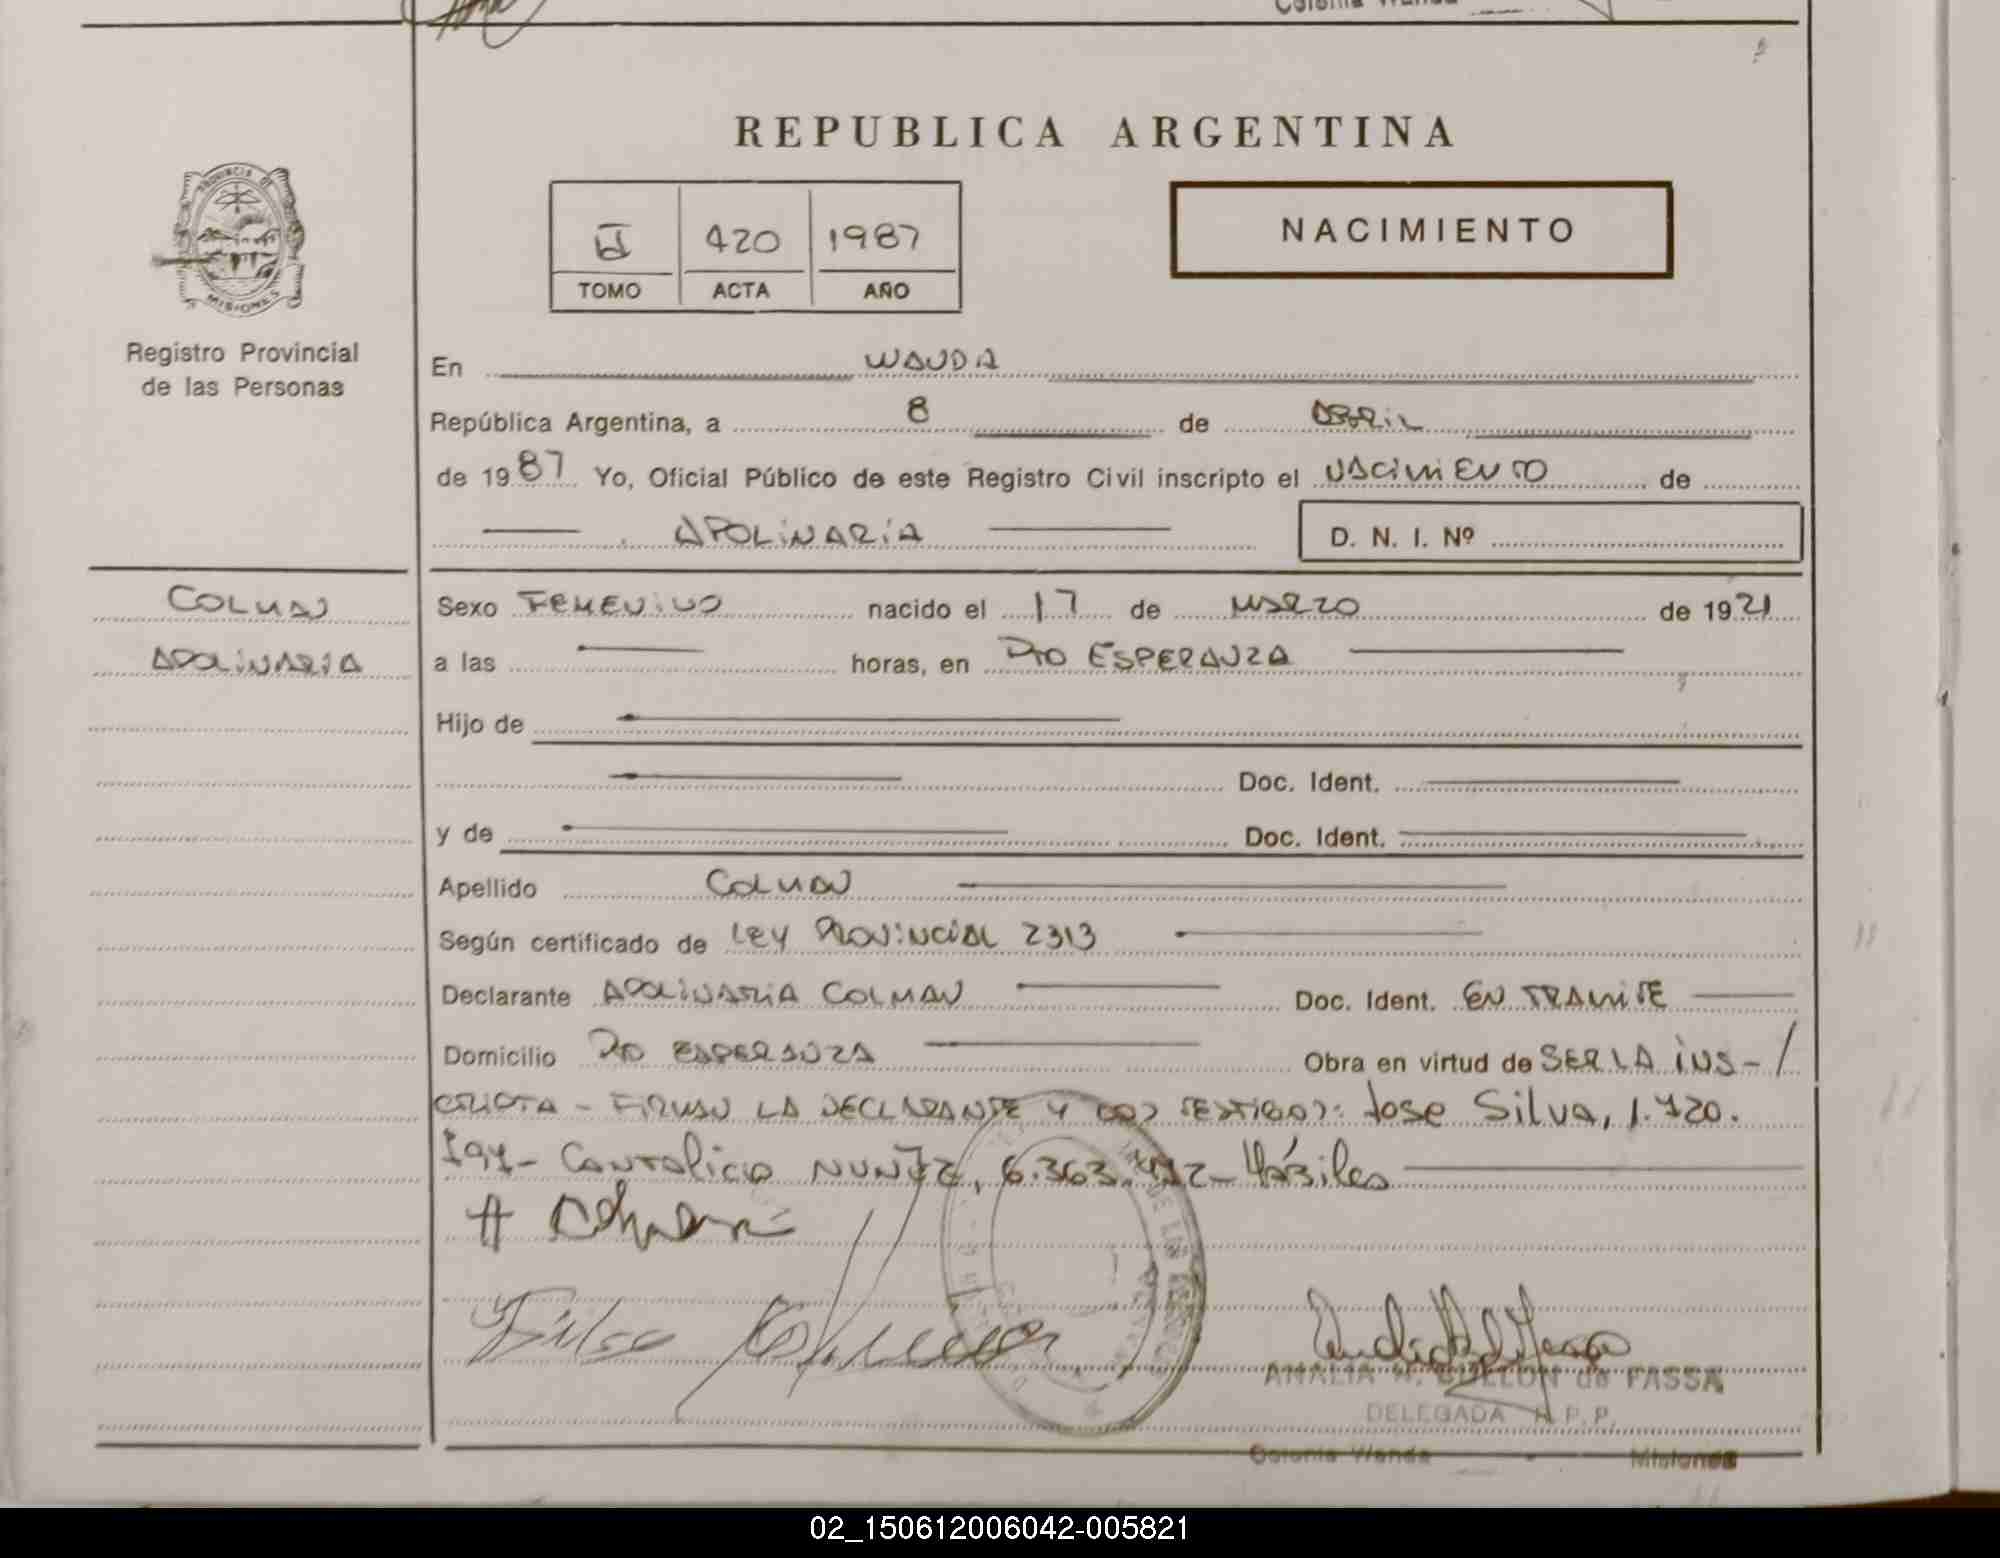 Colonia Wanda
REPUBLICA ARGENTINA
PROVINCIA DE
MISIONES
Registro Provincial
de las Personas
II 420 1987
TOMO ACTA AÑO
NACIMIENTO
En WANDA
República Argentina, a 8 de ABRIL
de 1987 Yo, Oficial Público de este Registro Civil inscripto el NACIMIENTO de
APOLINARIA D. N. I. Nº
COLMAN
APOLINARIA
Sexo FEMENINO nacido el 17 de MARZO de 1921
a las horas, en PTO ESPERANZA
Hijo de
Doc. Ident.
y de Doc. Ident.
Apellido COLMAN
Según certificado de LEY PROVINCIAL 2313
Declarante APOLINARIA COLMAN Doc. Ident. EN TRAMITE
Domicilio PTO ESPERANZA Obra en virtud de SER LA INS-/
CRIPTA - FIRMAN LA DECLARANTE Y DOS TESTIGOS: Jose Silva, 1.720.
NUNEZ, 6.363. - Hábiles
AMALIA N. BULLON de FASSA
DELEGADA R.P.P.
Colonia Wanda - Misiones
02_150612006042-005821